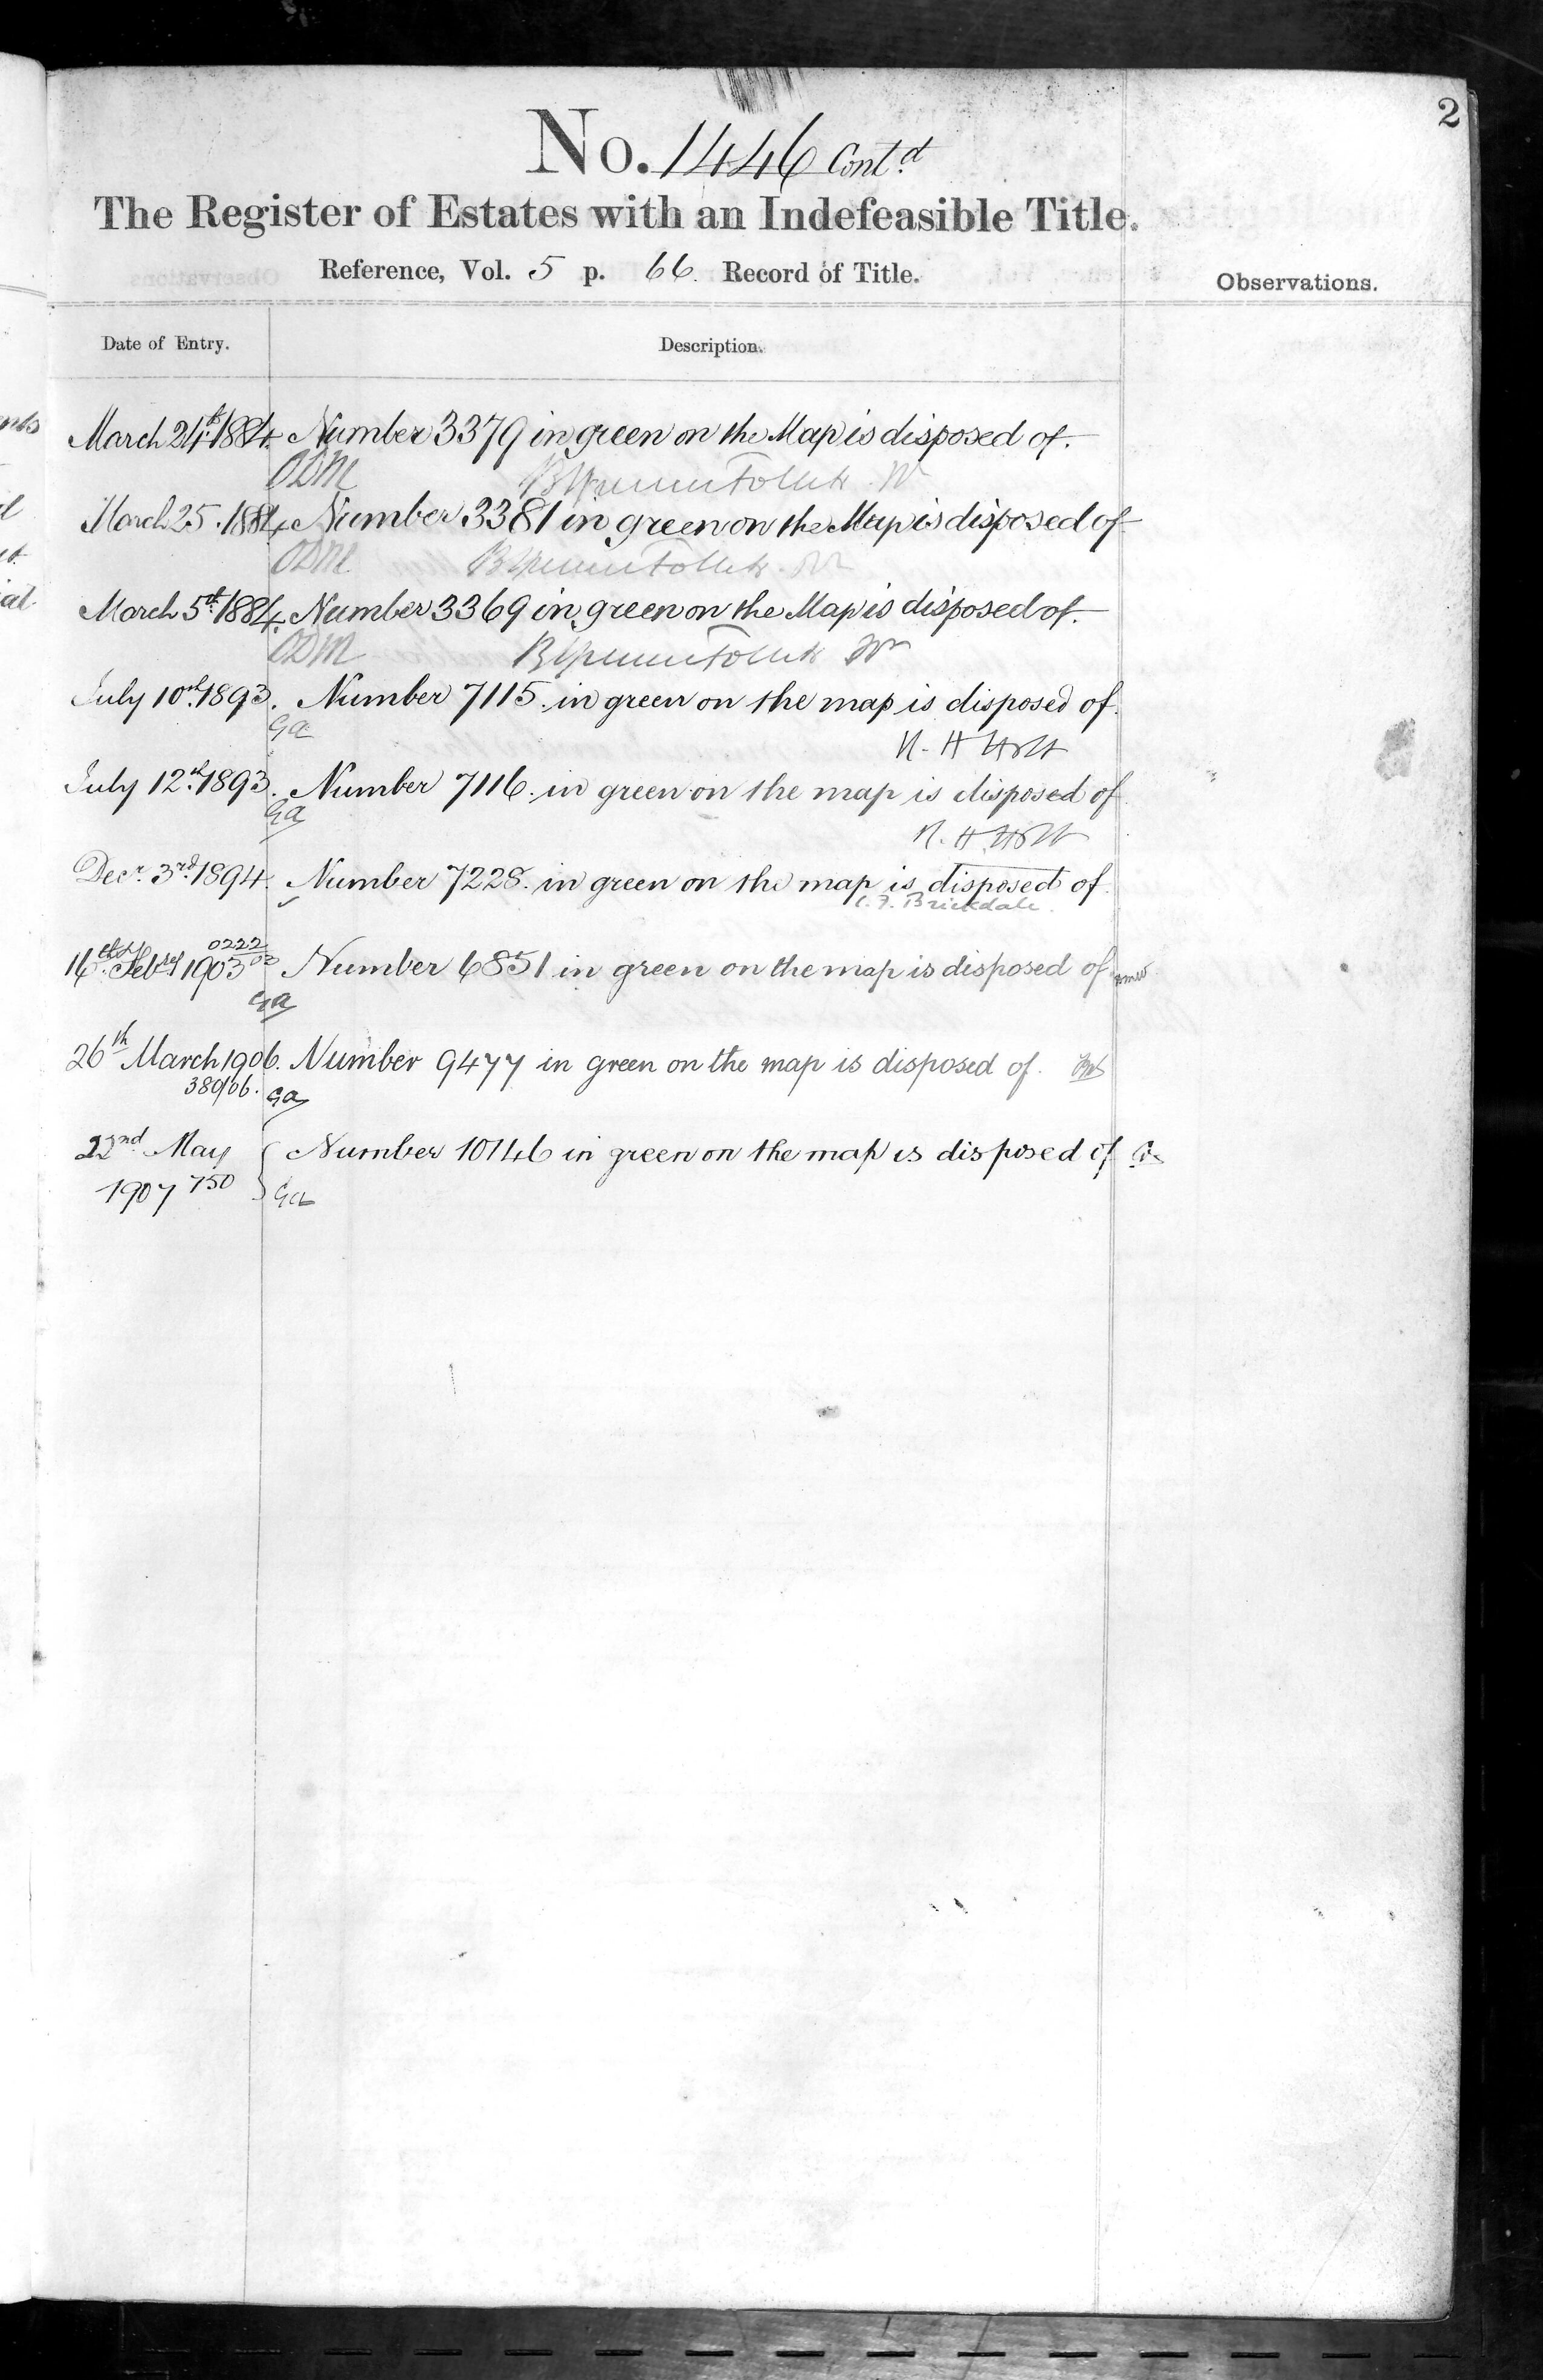 2
No. 1446 Cont.d
The Register of Estates with an Indefeasible Title.
Reference, Vol. 5 p. 66. Record of Title.
Observations.
Date of Entry.
Description.
March 24th. 1884. Number 3379 in green on the Map is disposed of.
ODM
March 25. 1884. Number 3381 in green on the Map is disposed of
ODM
March 5th. 1884. Number 3369 in green on the Map is disposed of.
ODM
July 10th. 1893. Number 7115. in green on the map is disposed of.
Ga
R. H Holt
July 12th. 1893. Number 7116. in green on the map is disposed of
Ga
R. H. Holt
Decr. 3rd. 1894. Number 7228. in green on the map is disposed of.
C. F. Brickdale.
0222
Number 6851 in green on the map is disposed of
Feby 1903
Ga
26th March 1906. Number 9477 in green on the map is disposed of.
380/06. Ga
22nd May Number 10746 in green on the map is disposed of
1907 750 Ga